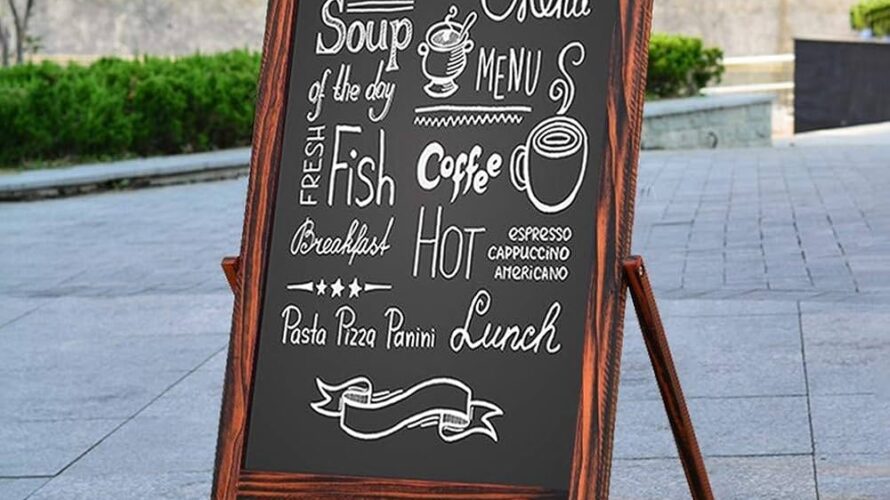 Menu
Soup
of the day
MENU
FRESH
Fish
Coffee
Breakfast
HOT
ESPRESSO
CAPPUCCINO
AMERICANO
Pasta Pizza Panini
Lunch